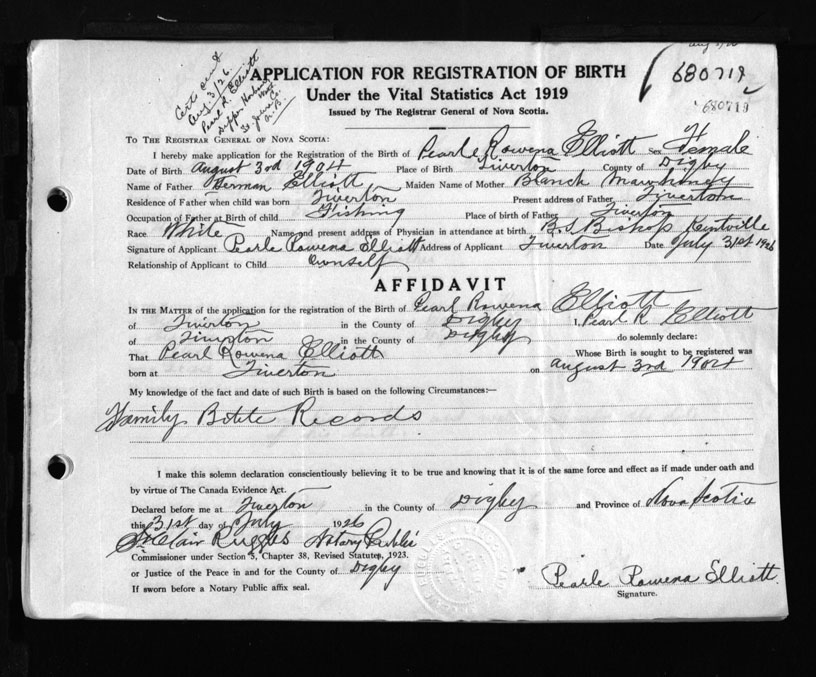 Aug 3/26
Pearl R. Elliott
APPLICATION FOR REGISTRATION OF BIRTH
680719
Under the Vital Statistics Act 1919
Issued by The Registrar General of Nova Scotia.
680719
TO THE REGISTRAR GENERAL OF NOVA SCOTIA:
I hereby make application for the Registration of the Birth of Pearle Rowena Elliott Sex Female
Date of Birth August 3rd 1904 Place of Birth Tiverton County of Digby
Name of Father Herman Elliott Maiden Name of Mother Blanch
Residence of Father when child was born Tiverton Present address of Father Tiverton
Occupation of Father at Birth of child Fishing Place of birth of Father Tiverton
Race White Name and present address of Physician in attendance at birth Bishop Kentville
Signature of Applicant Pearle Rowena Elliott Address of Applicant Tiverton Date July 31st 1926
Relationship of Applicant to Child ownself
AFFIDAVIT
IN THE MATTER of the application for the registration of the Birth of Pearl Rowena Elliott
of Tiverton in the County of Digby I, Pearl R Elliott
of in the County of Digby do solemnly declare:
That Pearl Rowena Elliott Whose Birth is sought to be registered was
born at Tiverton on August 3rd 1904
My knowledge of the fact and date of such Birth is based on the following Circumstances:—
Family Records
I make this solemn declaration conscientiously believing it to be true and knowing that it is of the same force and effect as if made under oath and
by virtue of The Canada Evidence Act.
Declared before me at Tiverton in the County of Digby and Province of Nova Scotia
this 31st day of July 1926
St Clair Ruggles Notary Public
Commissioner under Section 5, Chapter 38, Revised Statutes, 1923.
or Justice of the Peace in and for the County of Digby
If sworn before a Notary Public affix seal.
Pearle Rowena Elliott
Signature.